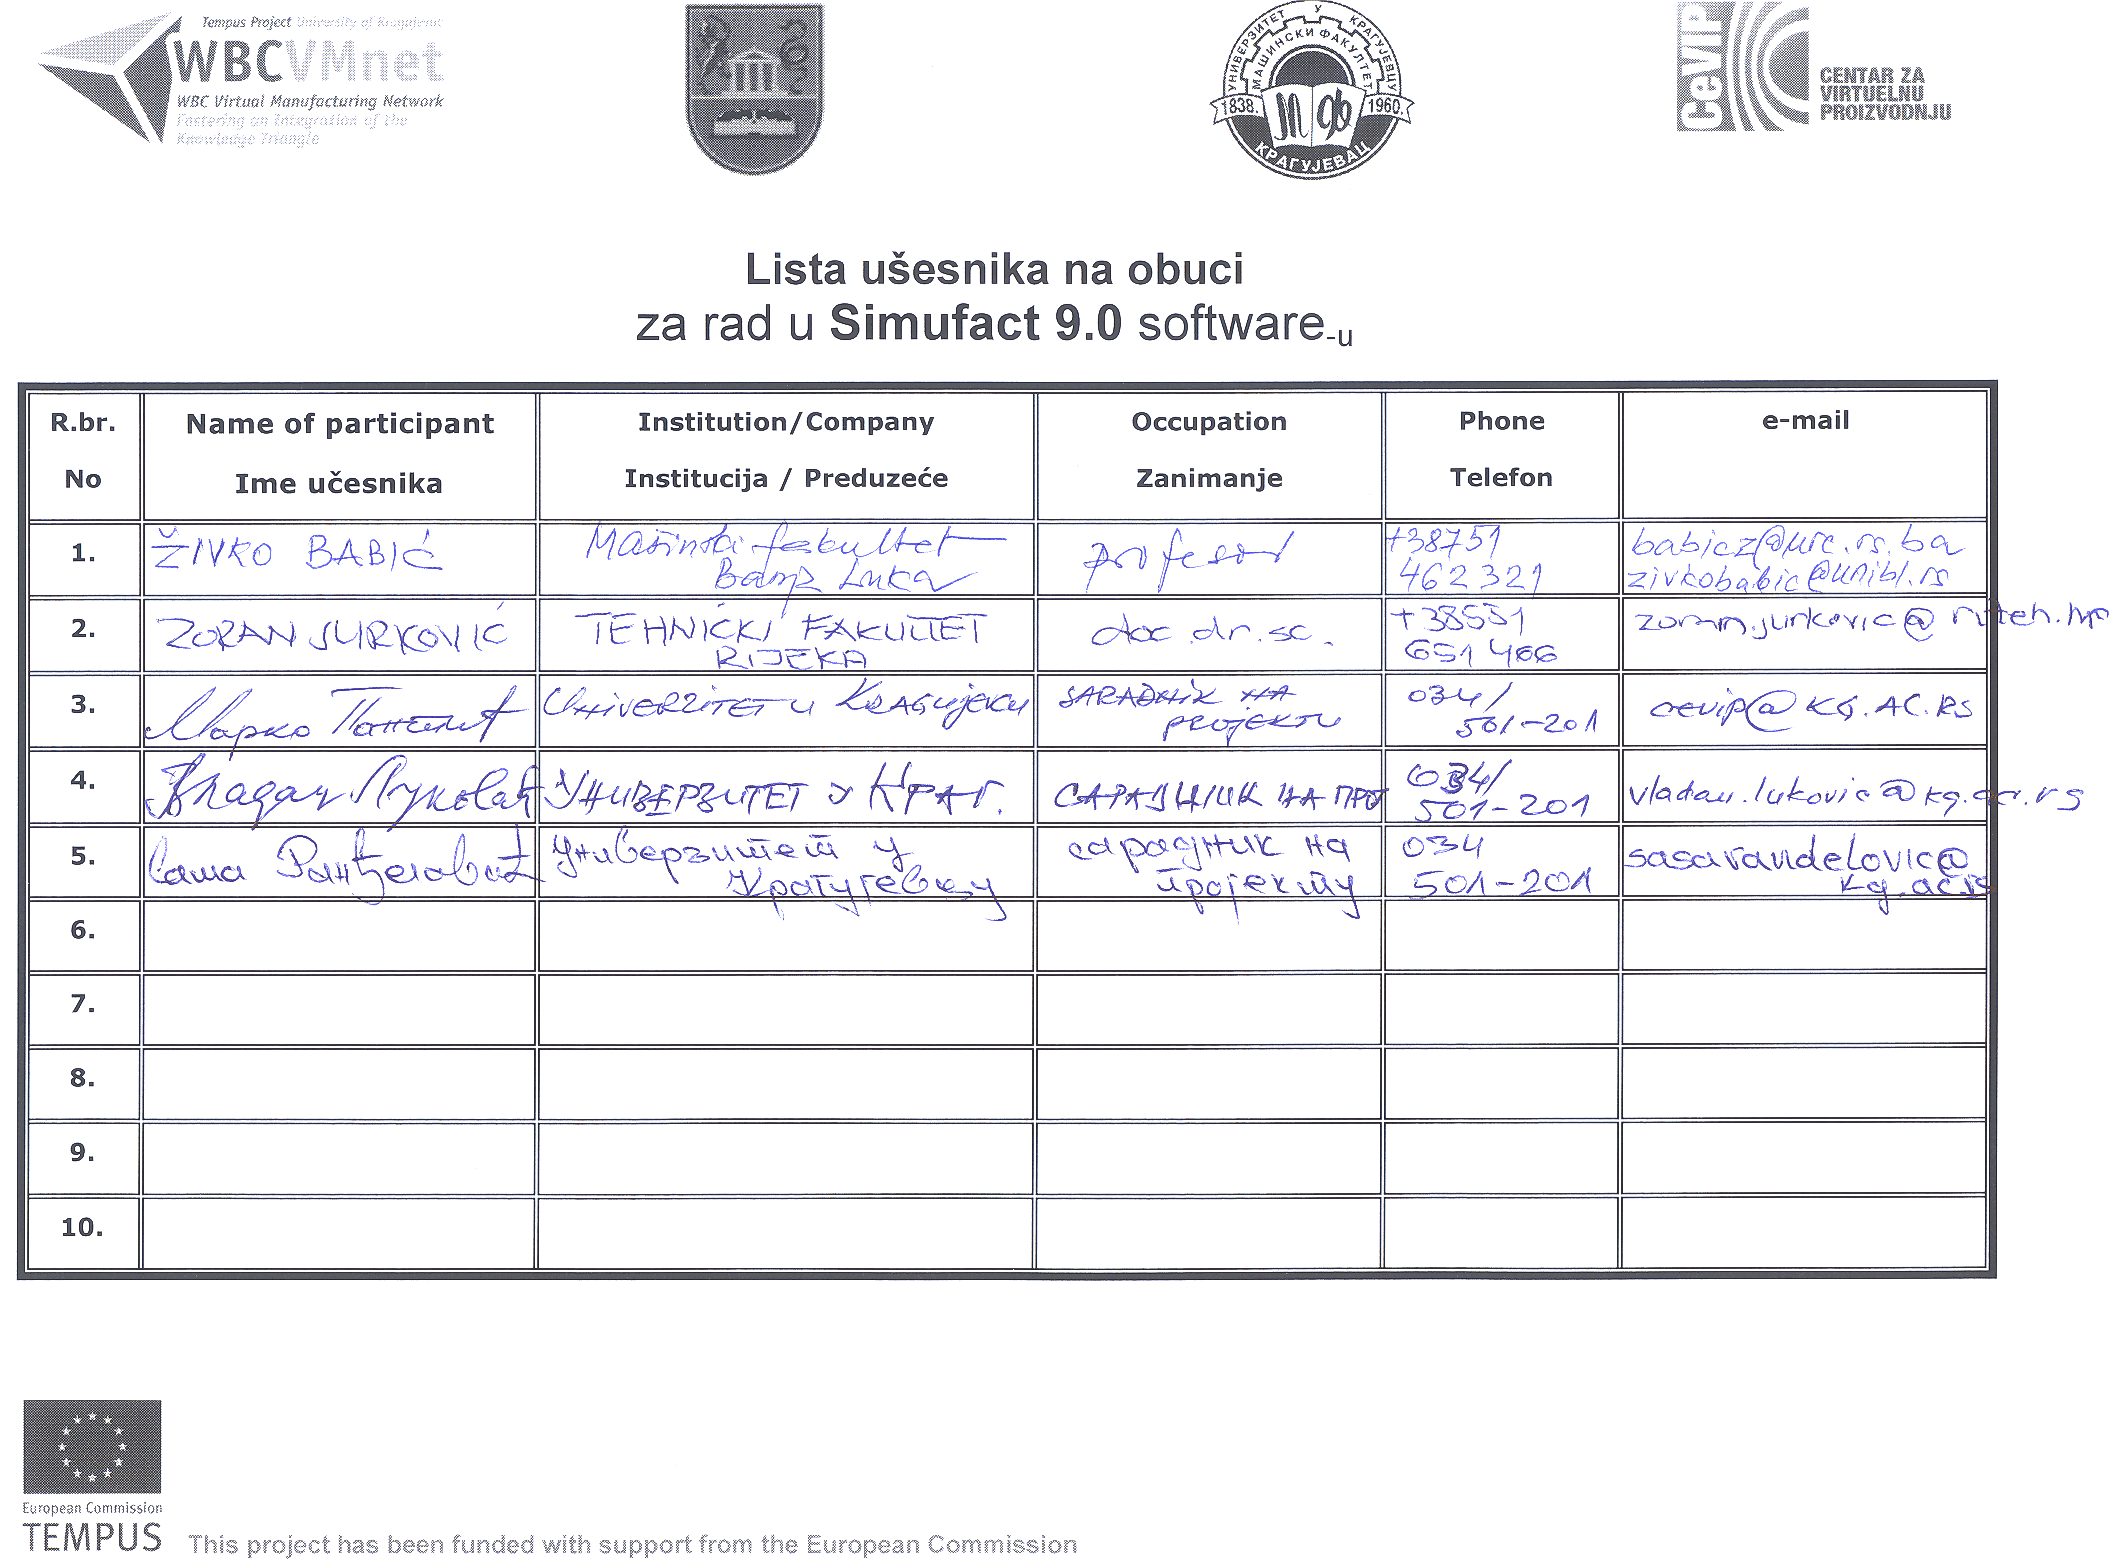 Tempus Project University of Kragujevac
WBCVMnet
WBC Virtual Manufacturing Network
Fostering an Integration of the
Knowledge Triangle
УНИВЕРЗИТЕТ У КРАГУЈЕВЦУ
МАШИНСКИ ФАКУЛТЕТ
1838. 1960.
КРАГУЈЕВАЦ
CeVIP
CENTAR ZA
VIRTUELNU
PROIZVODNJU
Lista ušesnika na obuci
za rad u Simufact 9.0 software-u
R.br. No
Name of participant Ime učesnika
Institution/Company Institucija / Preduzeće
Occupation Zanimanje
Phone Telefon
e-mail
1. ŽIVKO BABIĆ
Mašinski fakultet
Banja Luka
profesor
+38751
462 321
babicz@urc.rs.ba
zivkobabic@unibl.rs
2. ZORAN JURKOVIĆ
TEHNIČKI FAKULTET
RIJEKA
doc.dr.sc.
+38551
651 466
zoran.jurkovic@riteh.hr
3. Марко
UNIVERZITET U KRAGUJEVCU
SARADNIK NA
PROJEKTU
034/
501-201
cevip@KG.AC.RS
4. Владан Луковић
УНИВЕРЗИТЕТ У КРАГ.
САРАДНИК НА ПРО
034/
501-201
vladan.lukovic@kg.ac.rs
5. Саша Ранђеловић
Универзитет у
Крагујевцу
сарадник на
пројекту
034
501-201
sasarandelovic@
kg.ac.rs
6.
7.
8.
9.
10.
European Commission
TEMPUS
This project has been funded with support from the European Commission